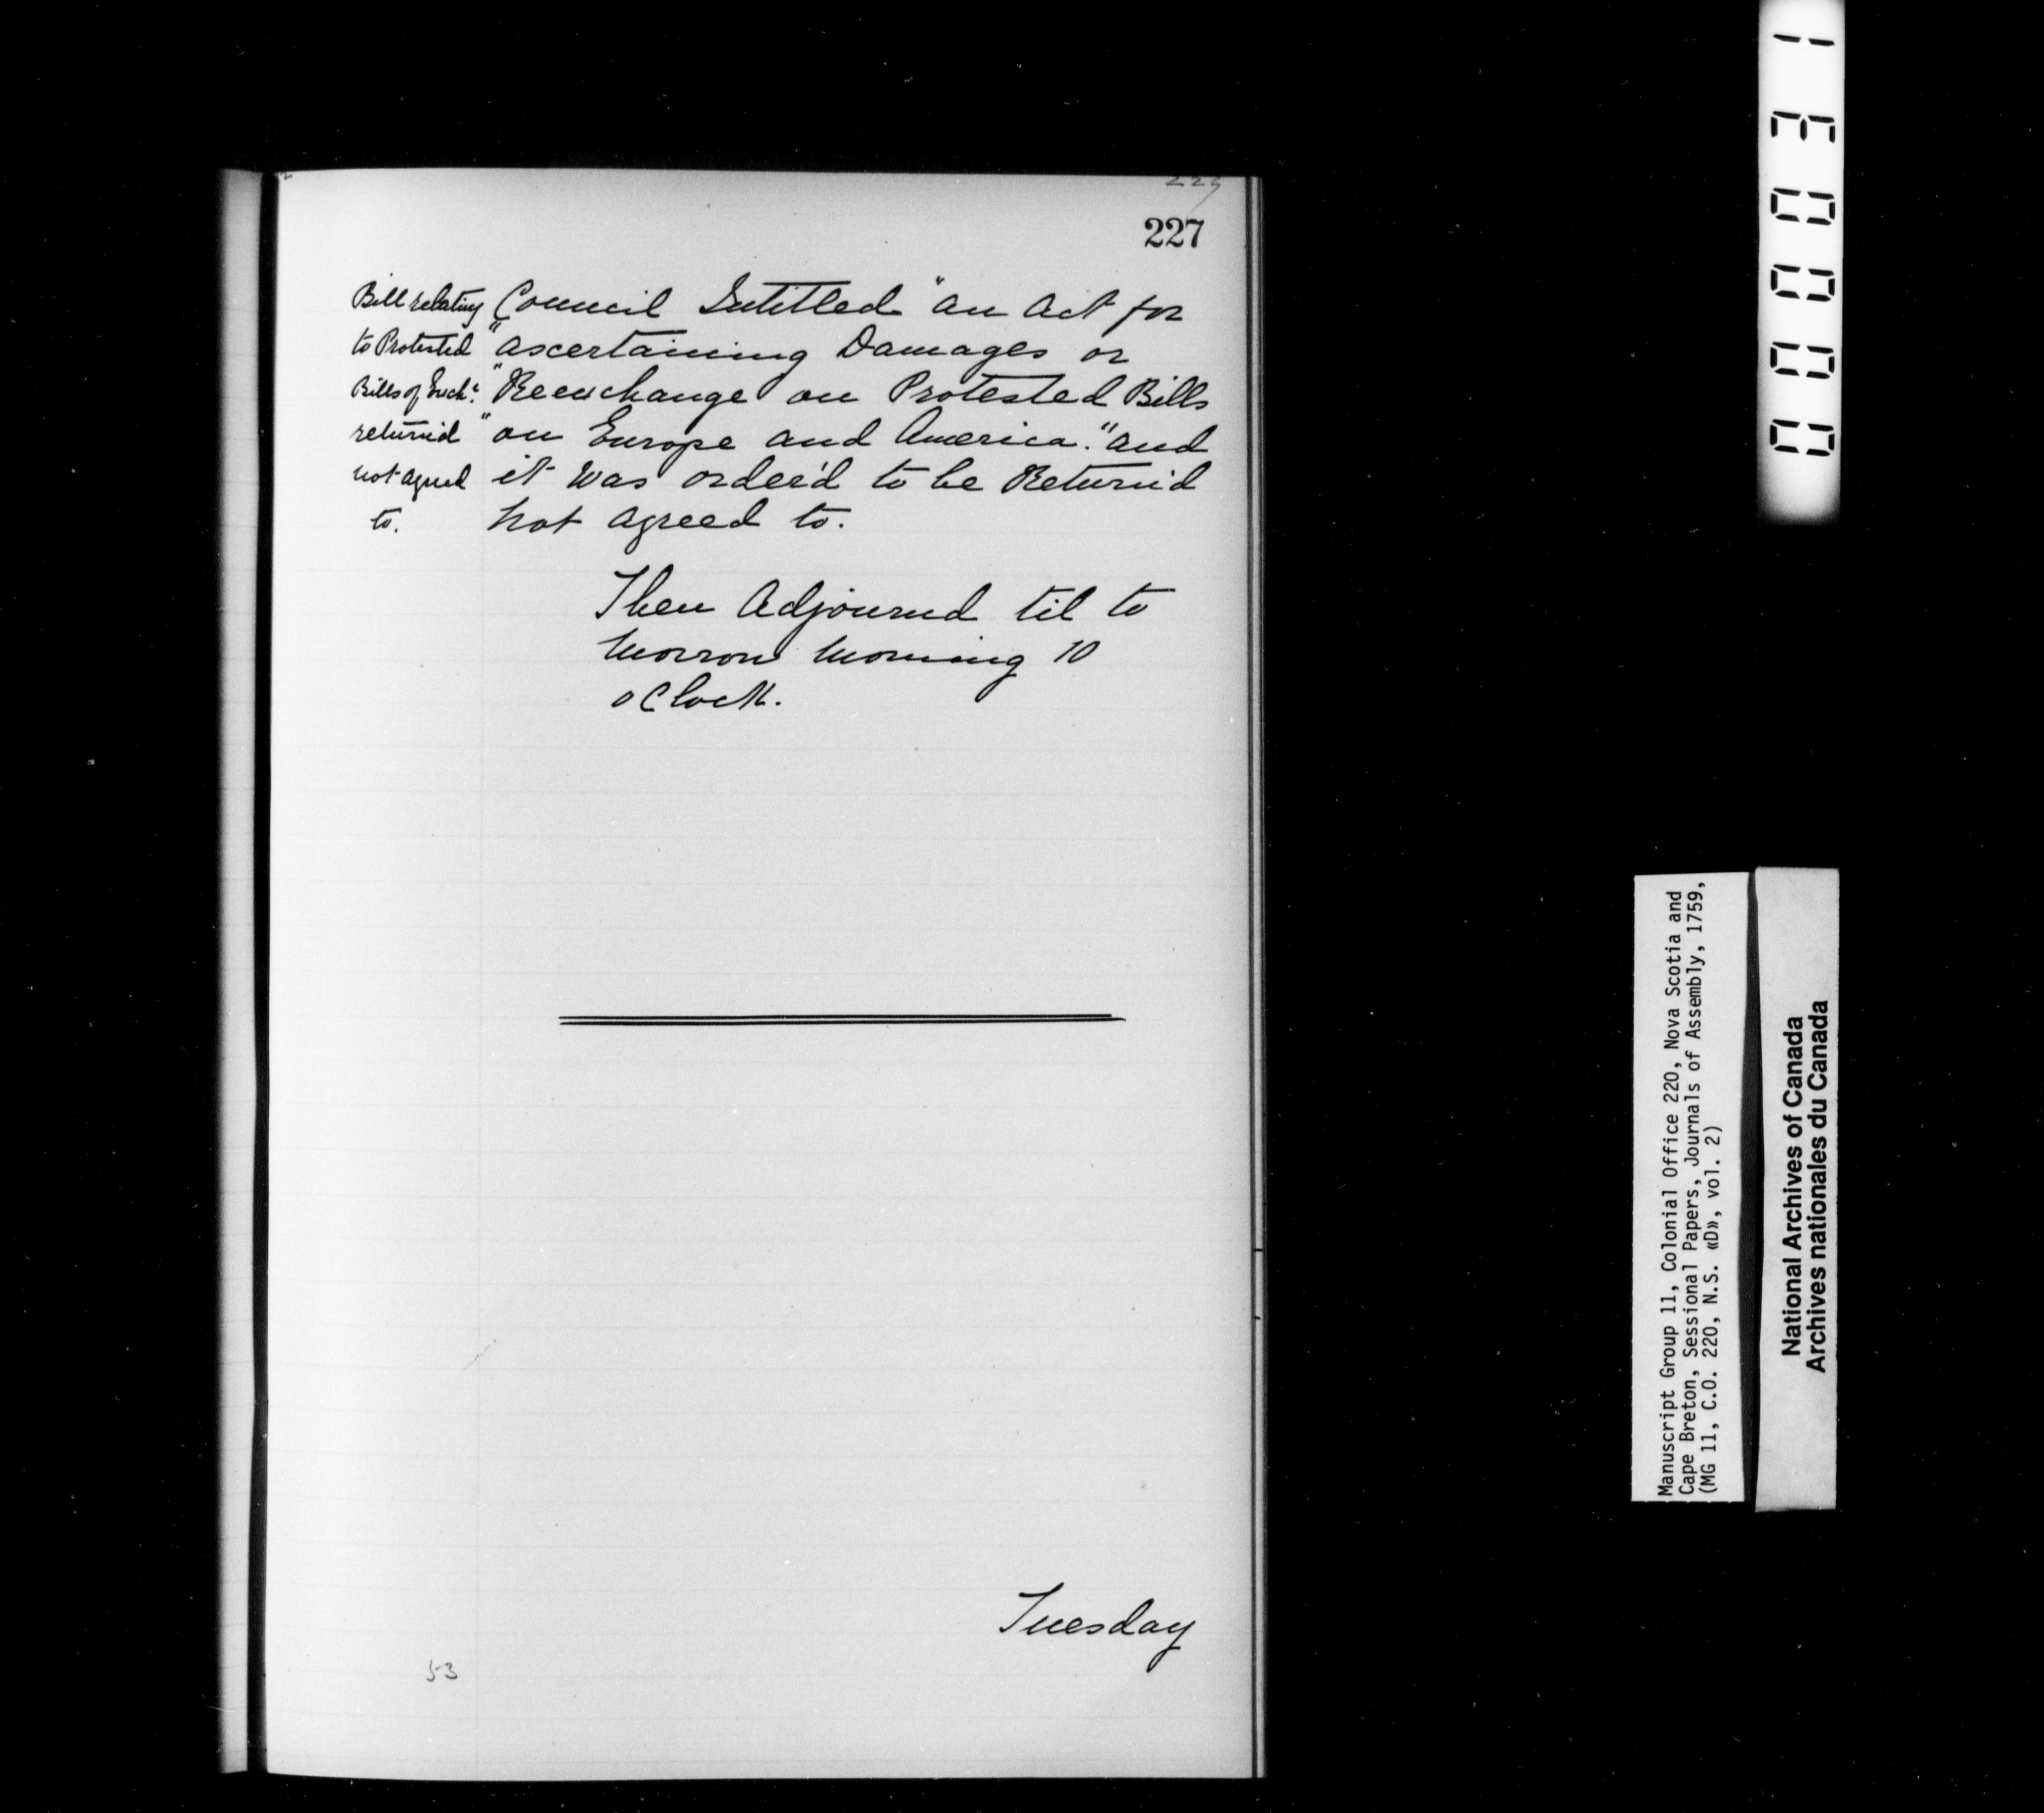 227
Bill relating
to Protested
Bills of Exch:ᵉ
returnd
not agreed
to.
Council Intitled "an Act for
"ascertaining Damages or
"Reexchange on Protested Bills
"on Europe and America." and
it was order'd to be Return'd
not agreed to.
Then Adjournd til to
morrow morning 10
oClock.
Tuesday
53
000031
Manuscript Group 11, Colonial Office 220, Nova Scotia and
Cape Breton, Sessional Papers, Journals of Assembly, 1759,
(MG 11, C.O. 220, N.S. «D», vol. 2)
National Archives of Canada
Archives nationales du Canada